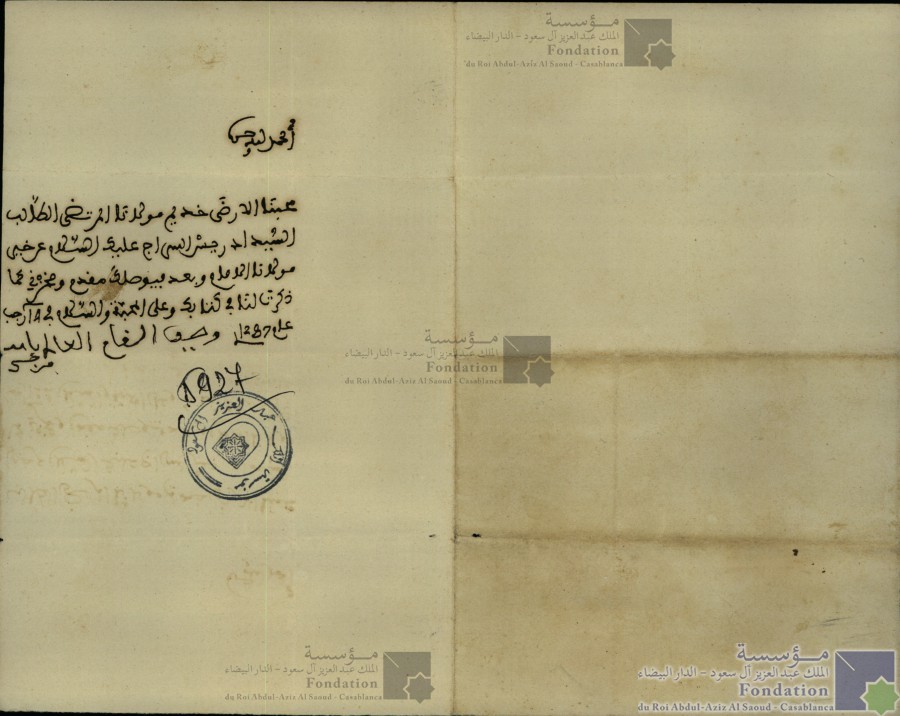 مؤسسة
الملك عبد العزيز آل سعود - الدار البيضاء
Fondation
du Roi Abdul-Aziz Al Saoud - Casablanca
الحمد لله وحده
محبنا الارضى خديم مولانا المرتضى الطالب
السيد ادريس السراج عليك السلام عن خير
مولانا الامام وبعد فيوصلك مقدم
ذكرت لنا في كتابك وعلى المحبة والسلام في رجب
عام 1287
D927
مؤسسة عبد العزيز
مؤسسة
الملك عبد العزيز آل سعود - الدار البيضاء
Fondation
du Roi Abdul-Aziz Al Saoud - Casablanca
مؤسسة
الملك عبد العزيز آل سعود - الدار البيضاء
Fondation
du Roi Abdul-Aziz Al Saoud - Casablanca
مؤسسة
الملك عبد العزيز آل سعود - الدار البيضاء
Fondation
du Roi Abdul-Aziz Al Saoud - Casablanca